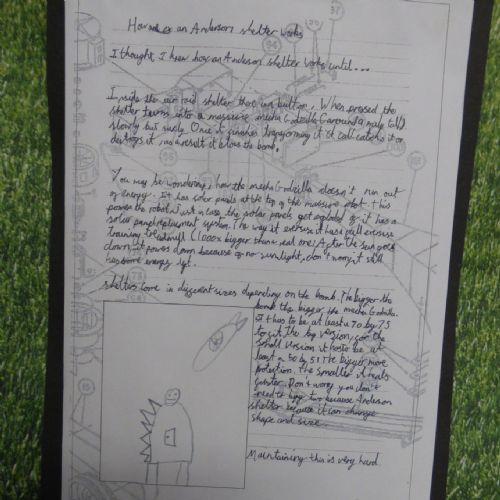 How an Anderson shelter works
I thought I knew how an Anderson shelter works until...
Inside the air raid shelter there is a button. When pressed the
shelter turns into a massive mecha Godzilla (around a mile tall)
slowly but surely. Once it finishes transforming it will catch it or
destroys it, as a result it blows the bomb.
You may be wondering how the mecha Godzilla doesn't run out
of energy. It has solar panels at the top of the massive robot. This
powers the robot. Just in case the solar panels get exploded it has a
solar panel replacement system. The way it exercises it has a full exercise
training treadmill (1000x bigger than a real one). After the sun goes
down it powers down because of no sunlight, don't worry it still
has some energy left.
Shelters come in different sizes depending on the bomb. The bigger the
bomb the bigger the mecha Godzilla.
It has to be at least a 70 by 75
to fit the top version, for the
small version it has to be at
least a 50 by 51. The bigger, more
protection. The smaller it heals
faster. Don't worry you don't
need to buy two because Anderson
shelter because it can change
shape and size.
Maintaining this is very hard.